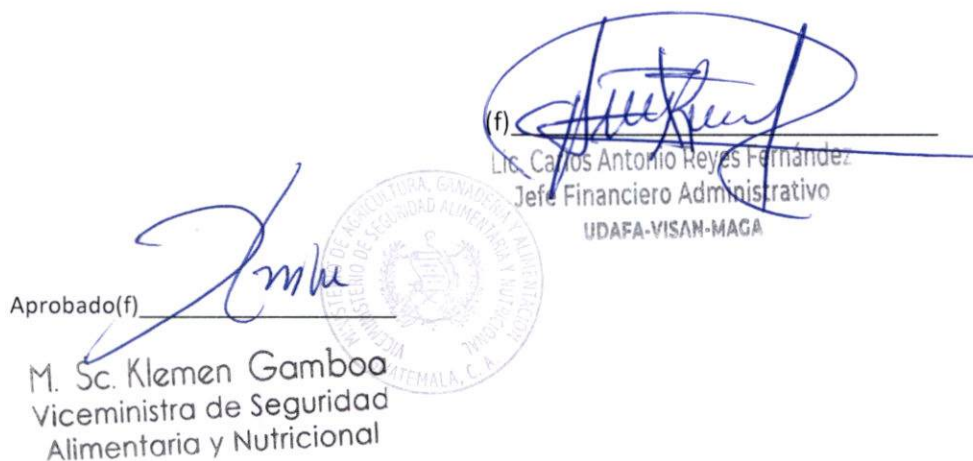 (f)
Lic. Carlos Antonio Reyes Fernández
Jefe Financiero Administrativo
UDAFA-VISAN-MAGA
MINISTERIO DE AGRICULTURA, GANADERIA Y ALIMENTACION
VICEMINISTERIO DE SEGURIDAD ALIMENTARIA Y NUTRICIONAL
GUATEMALA, C. A.
Aprobado(f)
M. Sc. Klemen Gamboa
Viceministra de Seguridad
Alimentaria y Nutricional